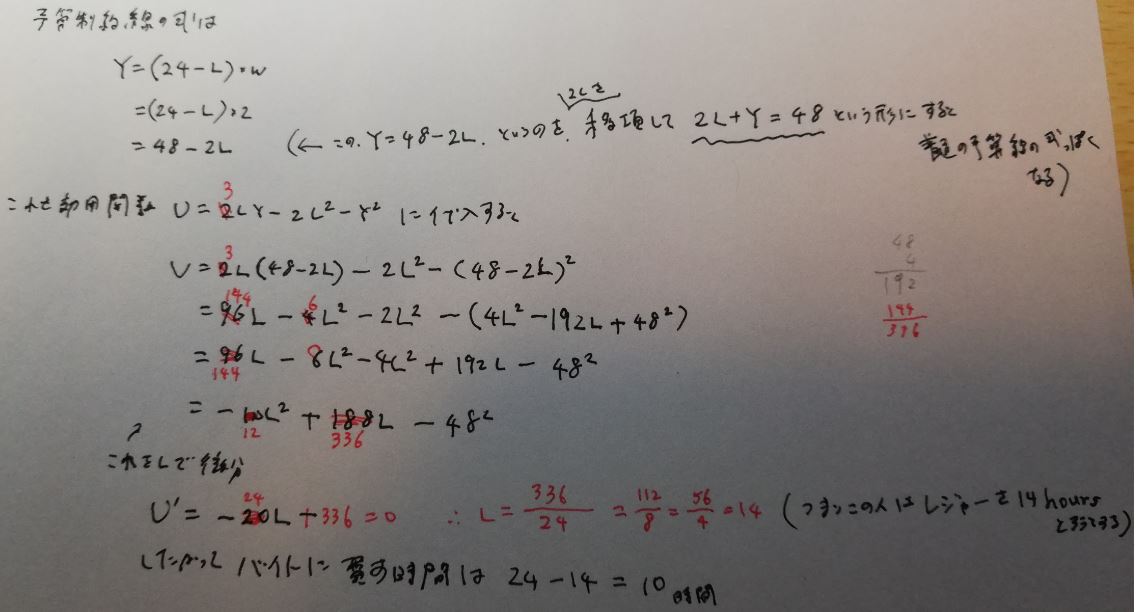 予算制約線の式は
Y=(24-L)・w
=(24-L)・2
=48-2L (←この、Y=48-2L、というのを、2Lを移項して 2L+Y=48 という形にすると
普通の予算線の式っぽく
なる)
これを効用関数 U=3LY-2L²-Y² に代入すると
U=3L(48-2L)-2L²-(48-2L)²
=144L-6L²-2L²-(4L²-192L+48²)
=144L-8L²-4L²+192L-48²
=-12L²+336L-48²
48
4
192
144
336
これをLで微分
U'=-24L+336=0 ∴ L=336/24=112/8=56/4=14 (つまりこの人はレジャーを14hours
とろうとする)
したがって バイトに費す時間は 24-14=10時間